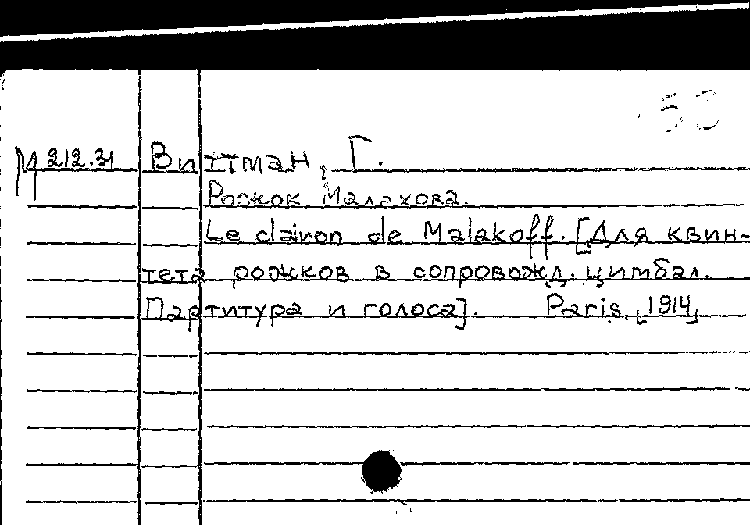 53
М 212.31 Виттман, Г.
Рожок Малахова.
Le clairon de Malakoff. [Для квин-
тета рожков в сопровожд. цимбал.
Партитура и голоса]. Paris, [1914]